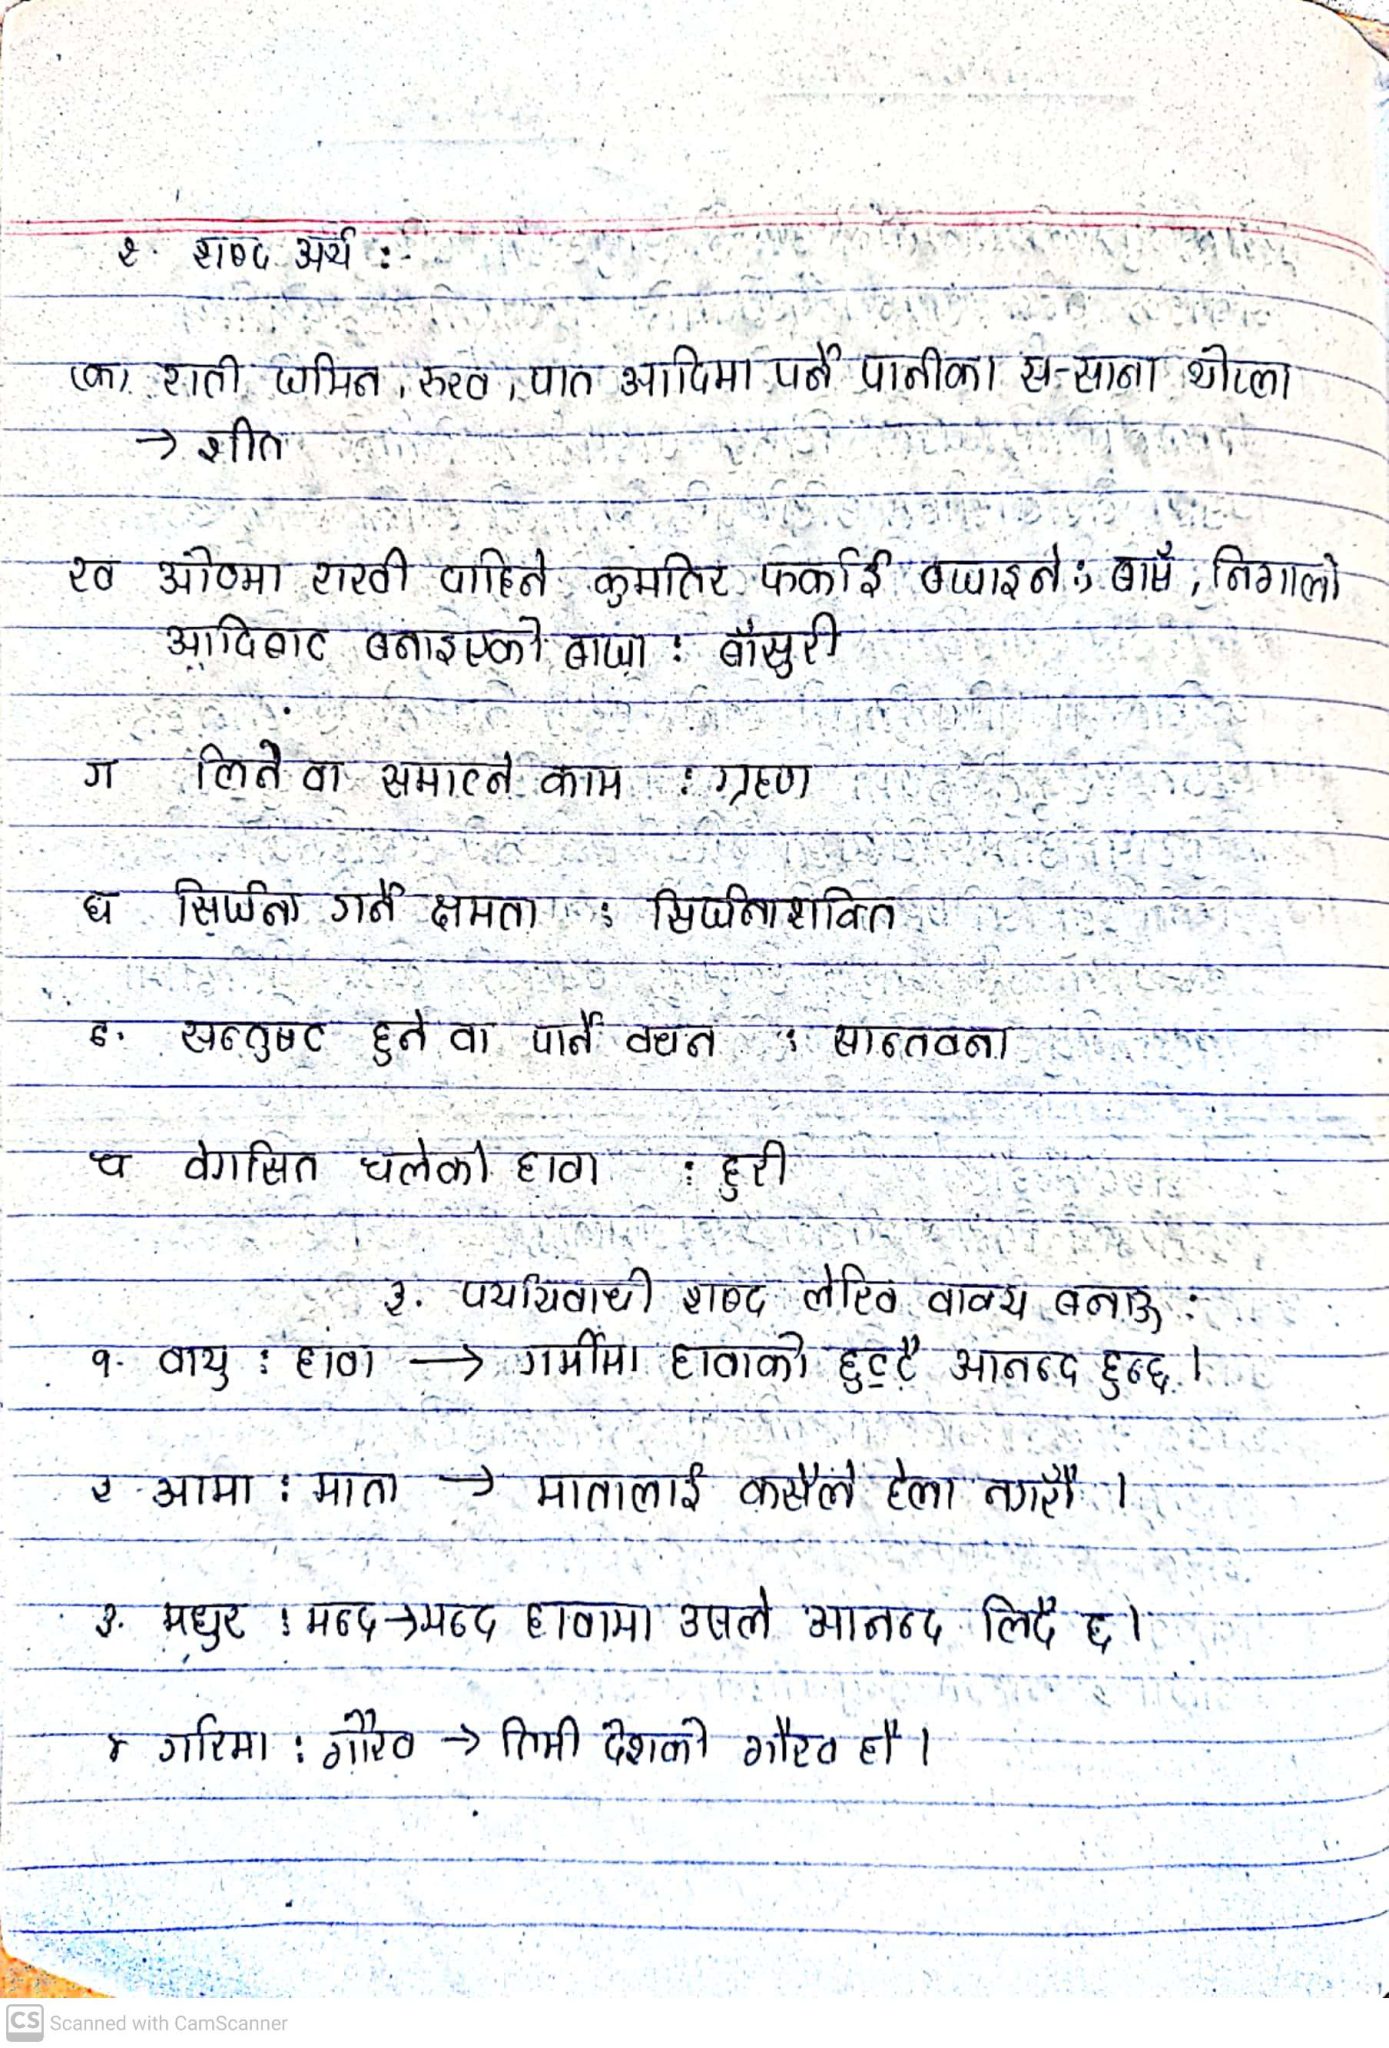 २. शब्द अर्थ :-
(क) राती जमिन, रुख, पात आदिमा पर्ने पानीका स-साना थोप्ला
→ शीत
ख ओठमा राखी दाहिने कुमतिर फर्काई बजाइने; बाँस, निगालो
आदिबाट बनाइएको बाजा : बाँसुरी
ग लिने वा समाल्ने काम : ग्रहण
घ सिर्जना गर्ने क्षमता : सिर्जनाशक्ति
ङ. सन्तुष्ट हुने वा पार्ने वचन : सान्तवना
च वेगसित चलेको हावा : हुरी
३. पर्यायवाची शब्द लेखि वाक्य बनाऊ :
१. वायु : हावा → गर्मीमा हावाको छुट्टै आनन्द हुन्छ ।
२ आमा : माता → मातालाई कसैले हेला नगरौं ।
३. मधुर : मन्द → मन्द हावामा उसले आनन्द लिदै छ ।
४ गरिमा : गौरव → तिमी देशको गौरव हौ ।
CS Scanned with CamScanner